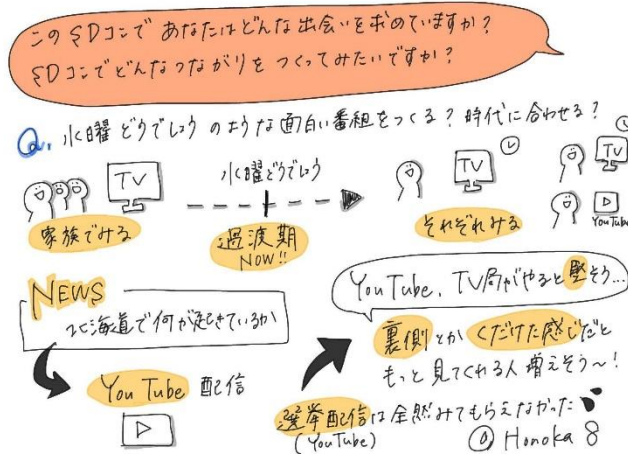 このSDコンで あなたはどんな出会いを求めていますか?
SDコンでどんなつながりを つくってみたいですか?
Q. 水曜どうでしょう のような面白い番組をつくる? 時代に合わせる?
TV
家族でみる
水曜どうでしょう
過渡期
NOW!!
TV
それぞれみる
TV
YouTube
NEWS
北海道で何が起きているか
You Tube 配信
YouTube、TV局がやると堅そう...
裏側とか くだけた感じだと
もっと見てくれる人 増えそう〜!
選挙配信は全然みてもらえなかった
(YouTube)
Honoka 8